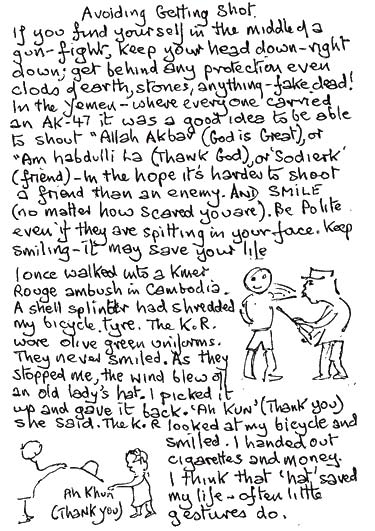 Avoiding Getting Shot.
If you find yourself in the middle of a
gun-fight, keep your head down-right
down; get behind any protection even
clods of earth, stones, anything-fake dead!
In the Yemen-where everyone carried
an AK-47 it was a good idea to be able
to shout "Allah Akbar (God is Great), or
"Am habdulli La (Thank God), or 'Sodierk'
(friend)-In the hope it's harder to shoot
a friend than an enemy. AND SMILE
(no matter how scared you are). Be Polite
even if they are spitting in your face. Keep
smiling-it may save your life
I once walked into a Kmer
Rouge ambush in Cambodia.
A shell splinter had shredded
my bicycle tyre. The K.R.
wore olive green uniforms.
They never smiled. As they
stopped me, the wind blew off
an old lady's hat. I picked it
up and gave it back. 'Ah Kun' (Thank you)
she said. The K.R looked at my bicycle and
smiled. I handed out
cigarettes and money.
I think that 'hat' saved
my life-often little
gestures do.
Ah Khun
(Thank you)